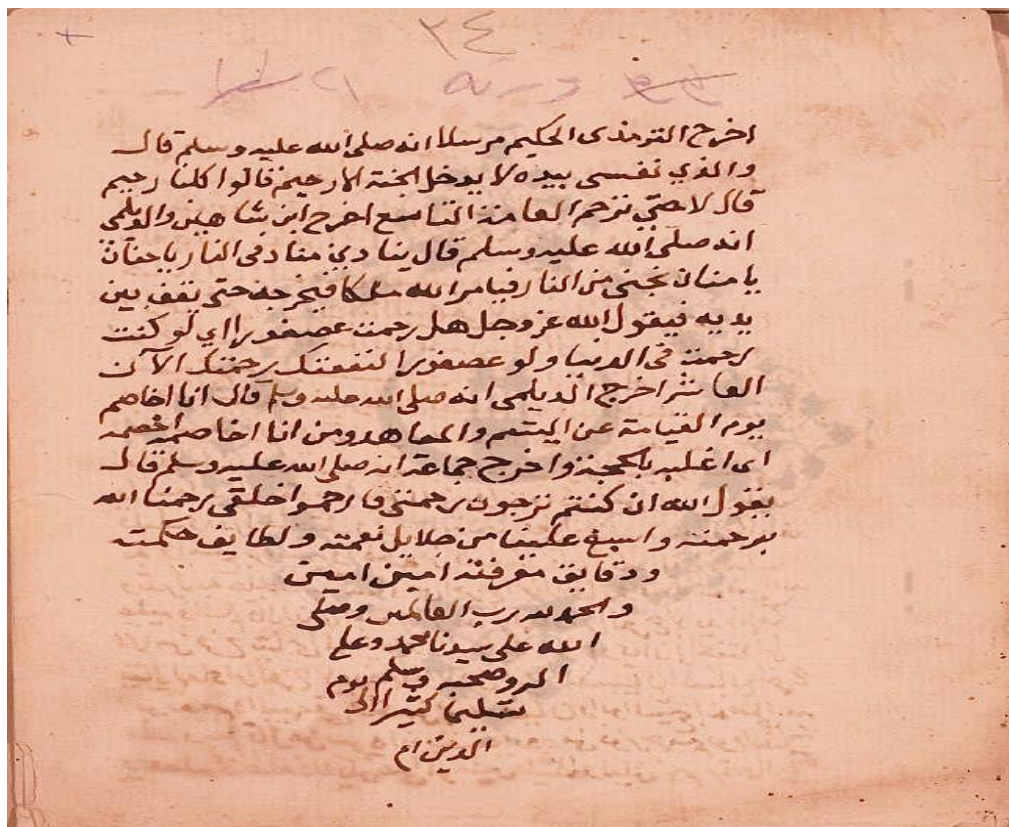 ٣٤
اخرج الترمذى الحكيم مرسلا انه صلى الله عليه وسلم قال
والذي نفسى بيده لا يدخل الجنة الا رحيم قالوا كلنا رحيم
قال لا حتي ترحم العامة التاسع اخرج ابن شاهين والديلمي
انه صلى الله عليه وسلم قال ينادي مناد فى النار ياحنان
يامنان نجنى من النار فيامر الله ملكا فيخرجه حتى يقف بين
يديه فيقول الله عز وجل هل رحمت عصفورا اي لو كنت
رحمت فى الدنيا ولو عصفورا لنفعتك رحمتك الآن
العاشر اخرج الديلمى انه صلى الله عليه وسلم قال انا اخاصم
يوم القيامة عن اليتيم والمعاهد ومن انا اخاصمه اخصمه
اى اغلبه بالحجة واخرج جماعة انه صلى الله عليه وسلم قال
يقول الله ان كنتم ترجون رحمتى فارحموا خلقى رحمنا الله
برحمته واسبغ علينا من جلايل نعمته ولطايف حكمته
ودقايق معرفته امين امين
والحمد لله رب العالمين وصلى
الله على سيدنا محمد وعلى
اله وصحبه وسلم
تسليما كثيرا الى يوم
الدين ام